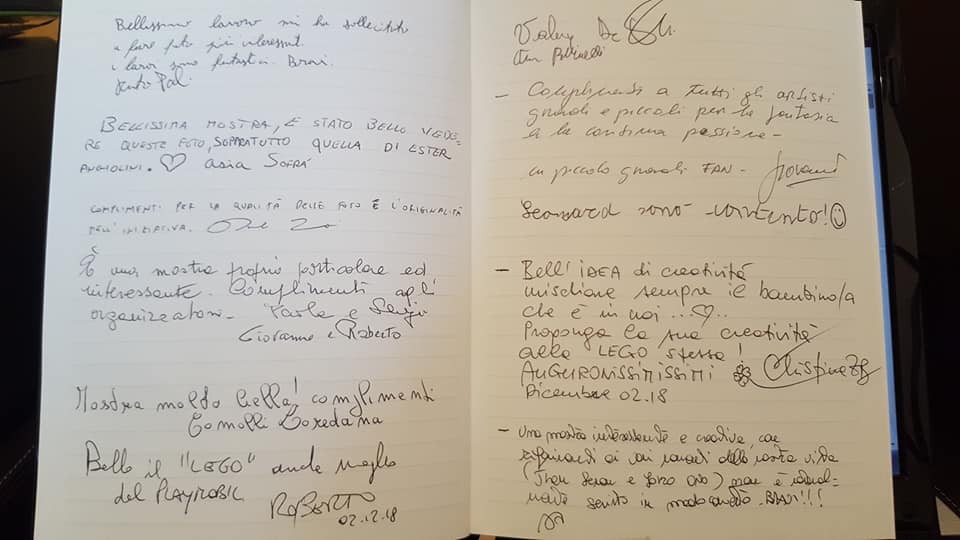 Bellissimo lavoro mi ha sollecitato
a fare foto più interessanti.
i lavori sono fantastici. Bravi.
BELLISSIMA MOSTRA, È STATO BELLO VEDE-
RE QUESTE FOTO, SOPRATUTTO QUELLA DI ESTER
ANGIOLINI. ♡ asia SOFRÁ
COMPLIMENTI PER LA QUALITÀ DELLE FOTO E L'ORIGINALITÀ
DELL'INIZIATIVA.
È una mostra proprio particolare ed
interessante. Complimenti agli
organizzatori. Paola e Sergio
Giovanna e Roberto
Mostra molto bella! complimenti
Comolli Loredana
Bello il "LEGO" anche meglio
del PLAYMOBIL
ROBERTO
02.12.18
Valery De
- Complimenti a tutti gli artisti
grandi e piccoli per la fantasia
e la continua passione -
un piccolo grandi FAN - Giovanni
Leonard sono contento! ☺
- Bell'IDEA di creatività
mischiare sempre il bambino/a
che è in noi...♡..
Proponga la sua creatività
alla LEGO stessa!
AUGURONISSIMISSIMI Christina
Dicembre 02.18
- Una mostra interessante e creativa, con
riferimenti ai vari momenti della nostra vita
servito in modo BRAVI!!!